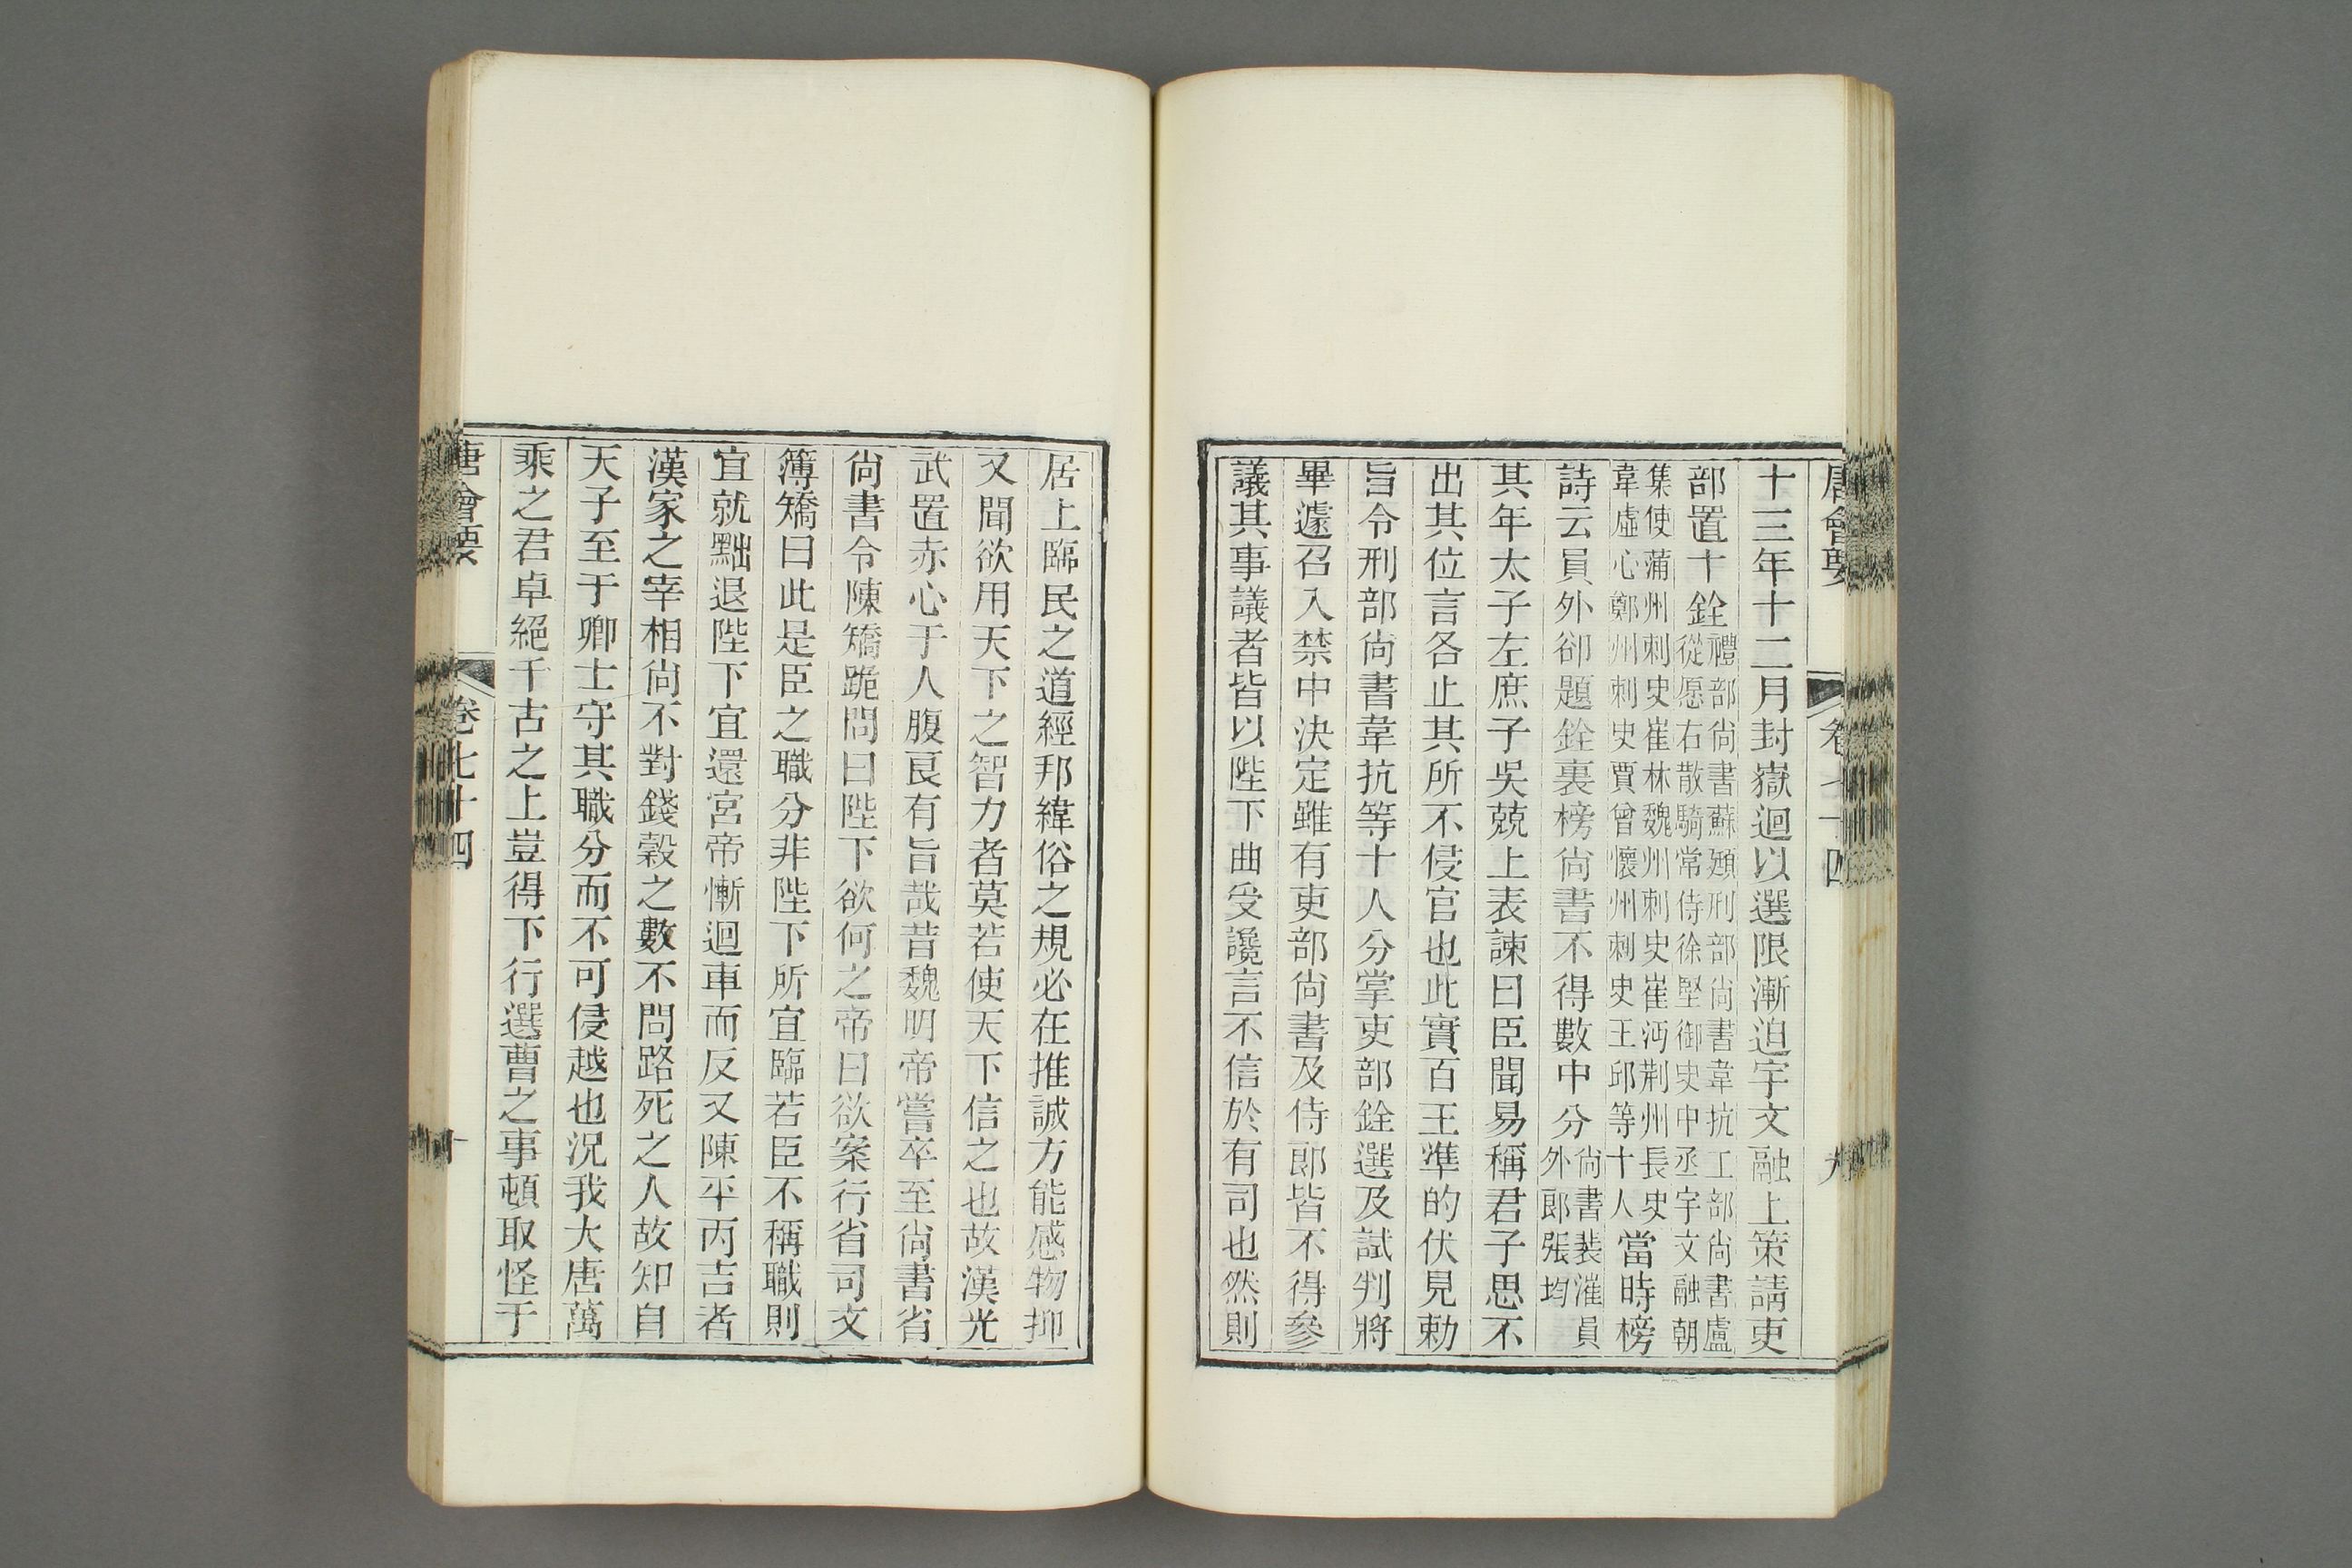 唐會要 卷七十四 九
十三年十二月封嶽迴以選限漸迫宇文融上策請吏
部置十銓禮部尚書蘇頲刑部尚書韋抗工部尚書盧從愿右散騎常侍徐堅御史中丞宇文融朝
集使蒲州刺史崔林魏州刺史崔沔荆州長史韋虛心鄭州刺史賈曾懷州刺史王邱等十人當時榜
詩云員外卻題銓裏榜尚書不得數中分尚書裴漼員外郎張均
其年太子左庶子吳兢上表諫曰臣聞易稱君子思不
出其位言各止其所不侵官也此實百王準的伏見勅
旨令刑部尚書韋抗等十人分掌吏部銓選及試判將
畢遽召入禁中決定雖有吏部尚書及侍郎皆不得參
議其事議者皆以陛下曲受讒言不信於有司也然則
居上臨民之道經邦緯俗之規必在推誠方能感物抑
又聞欲用天下之智力者莫若使天下信之也故漢光
武置赤心于人腹良有旨哉昔魏明帝嘗卒至尚書省
尚書令陳矯跪問曰陛下欲何之帝曰欲案行省司文
簿矯曰此是臣之職分非陛下所宜臨若臣不稱職則
宜就黜退陛下宜還宮帝慚迴車而反又陳平丙吉者
漢家之宰相尚不對錢穀之數不問路死之人故知自
天子至于卿士守其職分而不可侵越也況我大唐萬
乘之君卓絕千古之上豈得下行選曹之事頓取怪于
唐會要 卷七十四